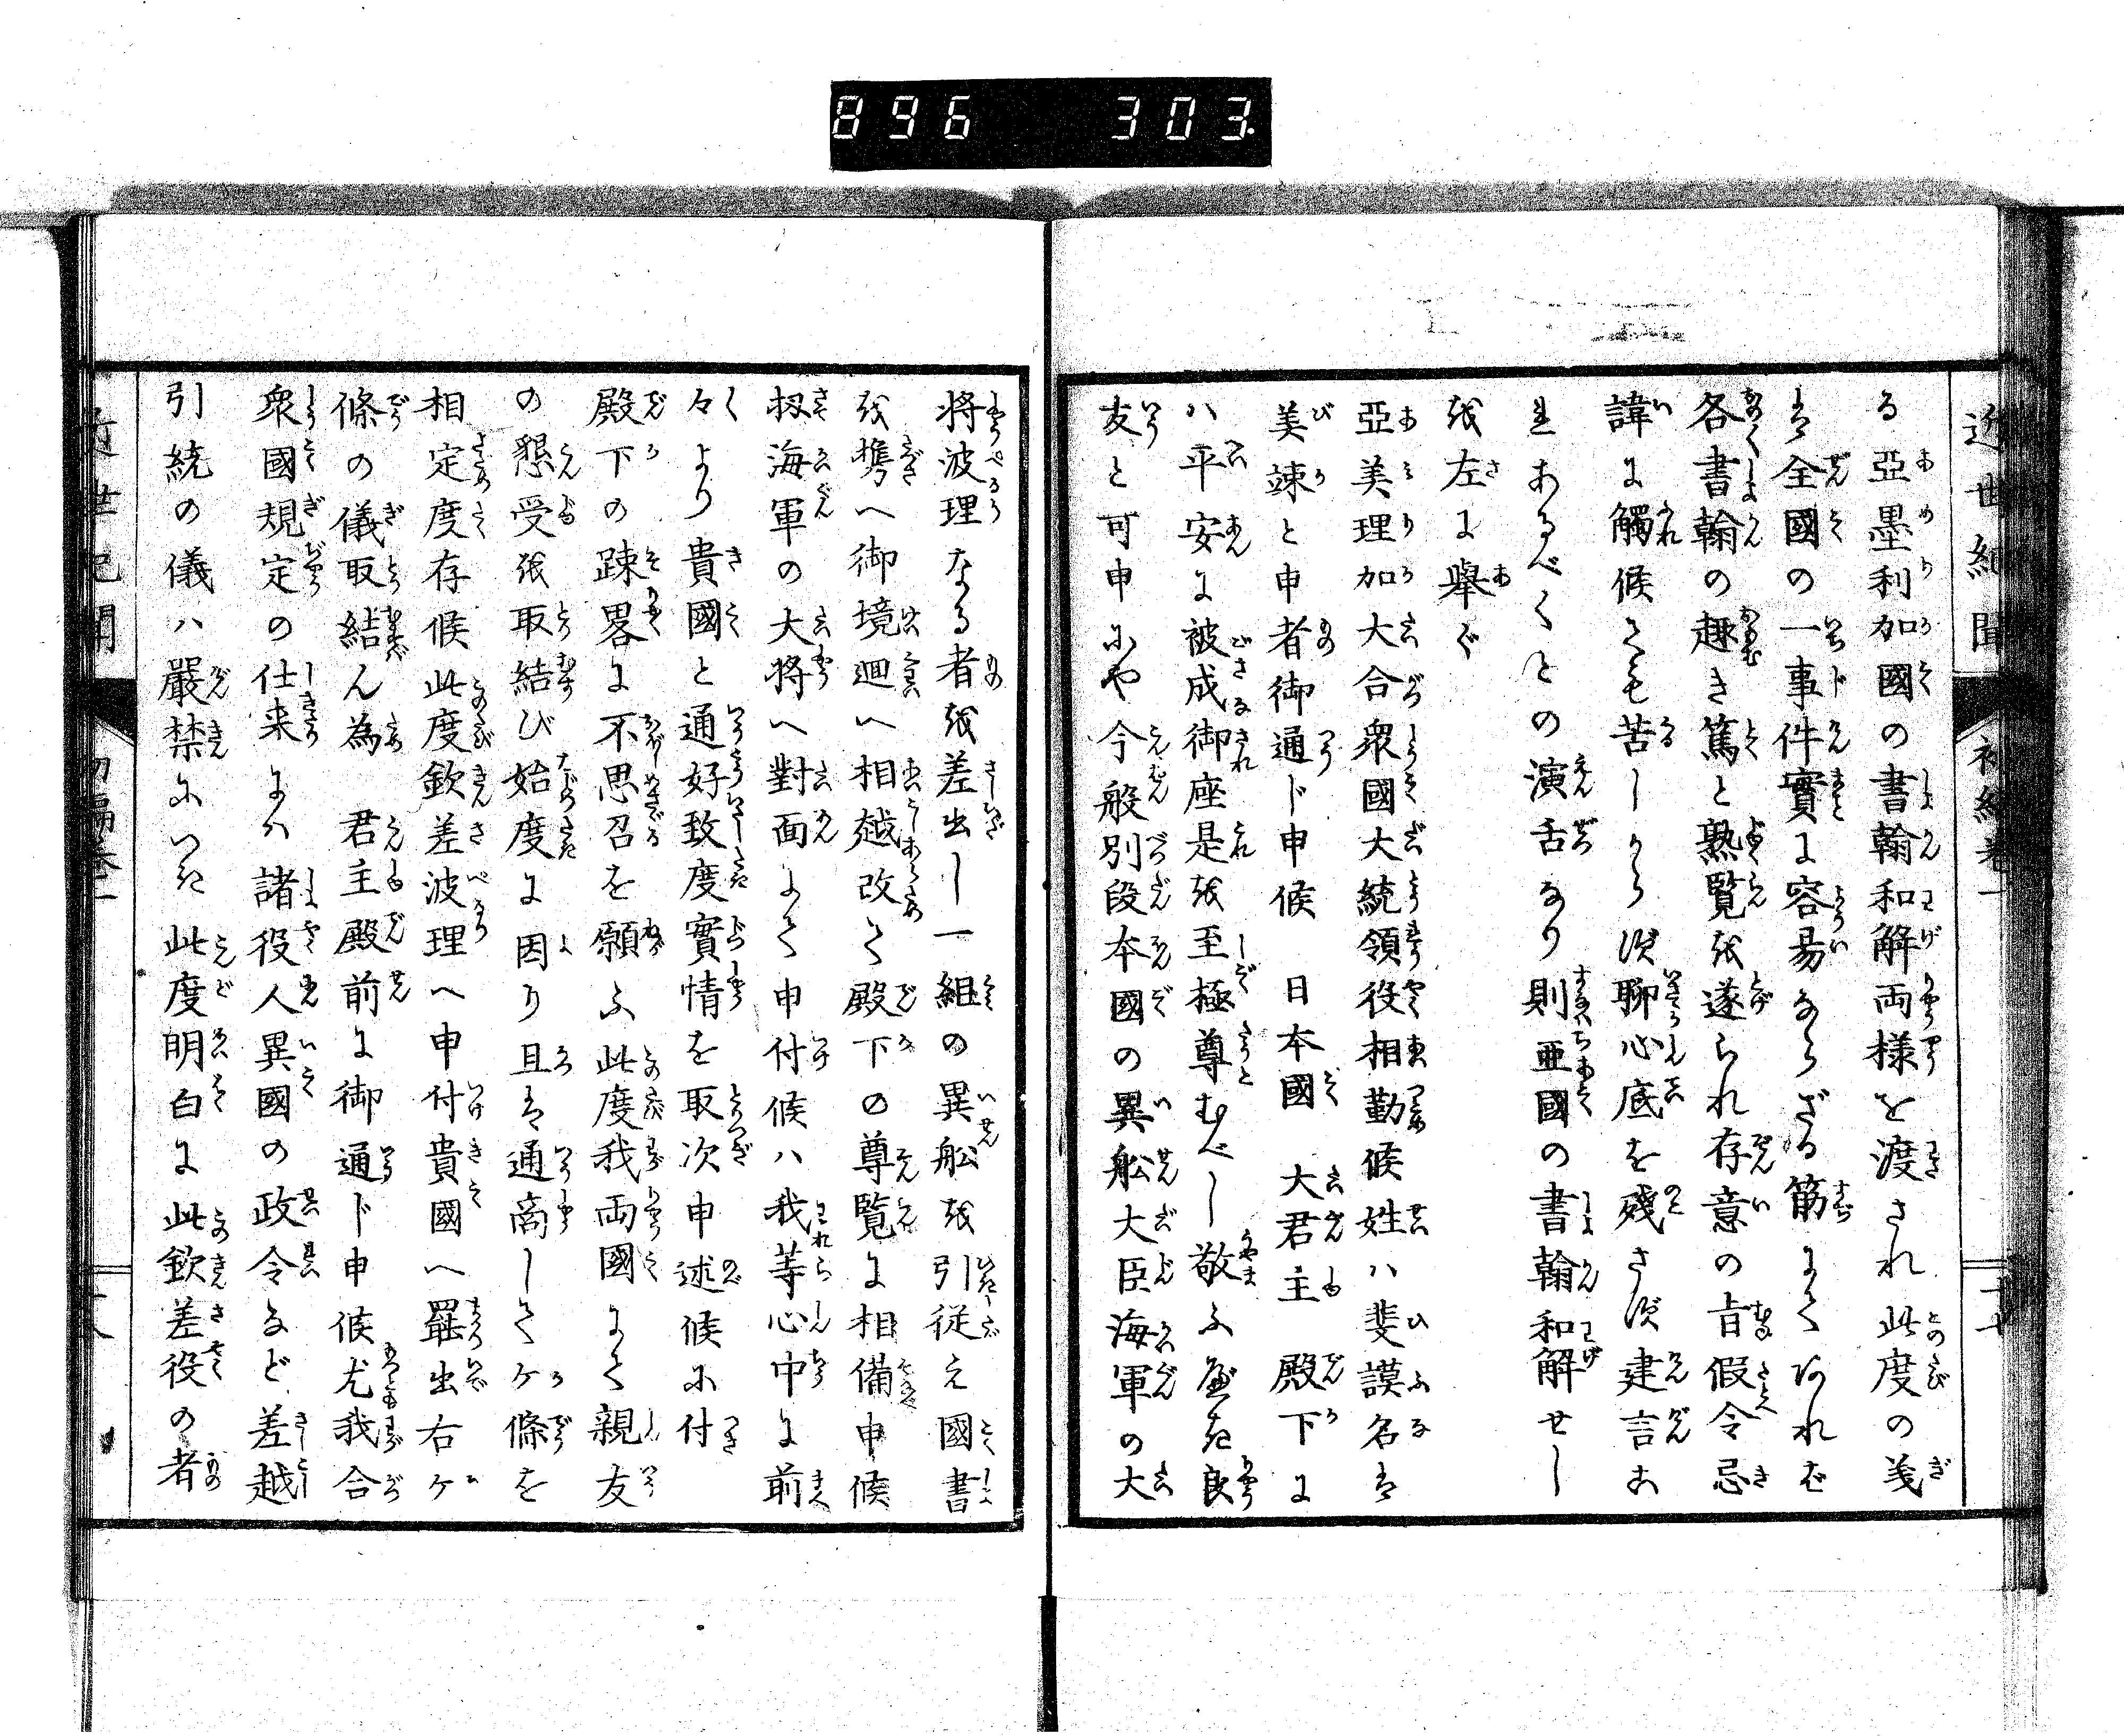 896 303
近世紀聞 初編卷一 二十七
る亞墨利加國の書翰和解両様を渡され此度の義
は全國の一事件實に容易ならざる筋にて候へれば
各書翰の趣き篤と熟覧を遂られ存意の旨假令忌
諱に觸候ても苦しからず聊心底を殘さず建言こ
れあるべくとの演舌なり則亜國の書翰和解せし
を左に擧ぐ
亞美理加大合衆國大統領役相勤候姓ハ斐謨名は
美辣と申者御通ド申候 日本國 大君主 殿下に
ハ平安に被成御座是を至極尊むべし敬ふべき良
友と可申にや今般別段本國の異舩大臣海軍の大
将波理なる者を差出し一組の異舩を引従え國書
を携へ御境廻へ相越改て殿下の尊覧に相備申候
扨海軍の大将へ對面にて申付候ハ我等心中に前
々より貴國と通好致度實情を取次申述候に付
殿下の踈畧に不思召を願ふ此度我両國にて親友
の懇受を取結び始度に因り且は通商してケ條を
相定度存候此度欽差波理へ申付貴國へ罷出右ケ
條の儀取結ん為 君主殿前に御通ド申候尤我合
衆國規定の仕来にハ諸役人異國の政令など差越
引続の儀ハ嚴禁にいたし此度明白に此欽差役の者
近世紀聞 初編卷一 二十八